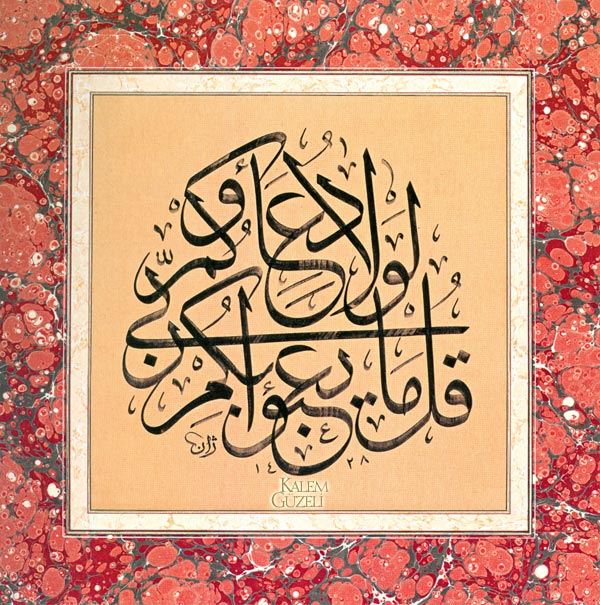 قُل مَا يَعْبَؤُا بِكُمْ رَبِّى لَوْلَا دُعَاؤُكُمْ
١٤٢٨
KALEM
GÜZELİ